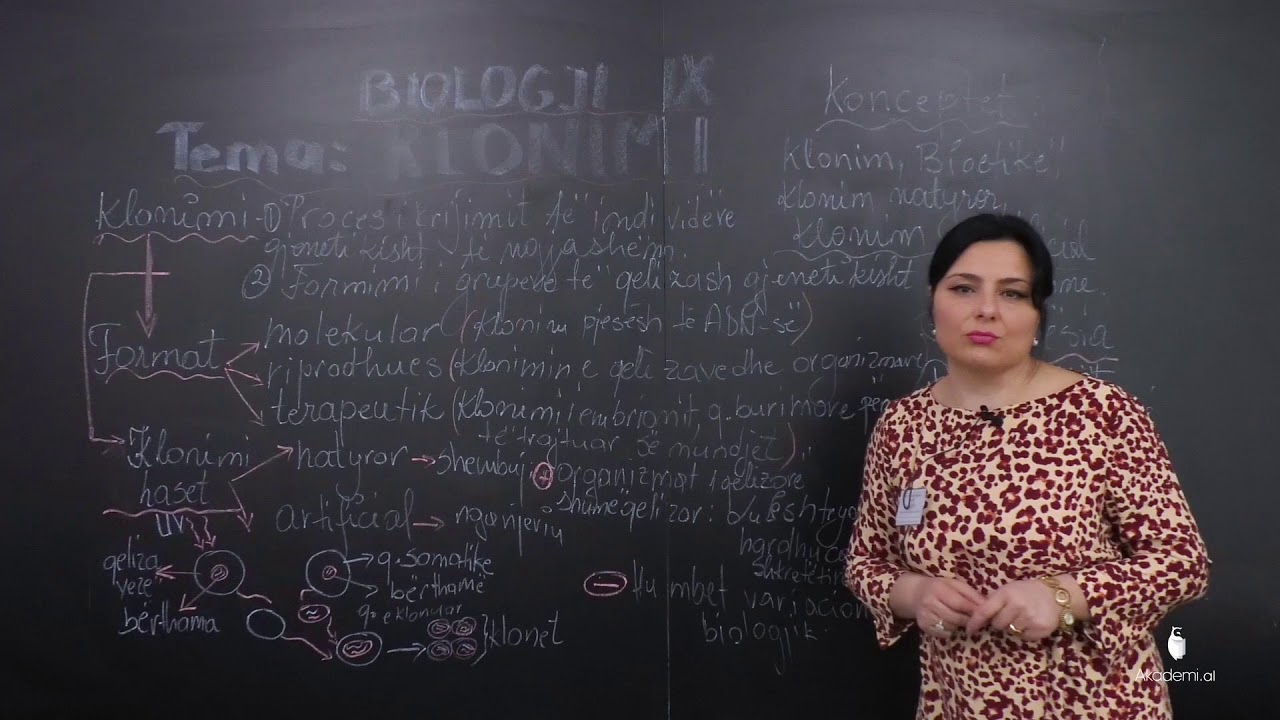 BIOLOGJI IX
Tema: KLONIMI
Klonimi - 1) Proces i krijimit të individëve
gjenetikisht të ngjashëm.
2) Formimi i grupeve të qelizash gjenetikisht
Format
molekular (klonim pjesësh të ADN-së)
riprodhues (klonimin e qelizave dhe organizmave
terapeutik (klonimi i embrionit, q. burimore për
të trajtuar sëmundjet).
Klonimi
haset
natyror → shembuj
+ organizmat 1 qelizore
shumëqelizor: luleshtrydhja
hardhuca
artificial → nga njeriu
UV
qeliza
veze
bërthama
q. somatike
bërthamë
q. e klonuar
klonet
- humbet variacioni
biologjik.
Konceptet:
Klonim, Bioetikë,
klonim natyror,
klonim
Akademi.al